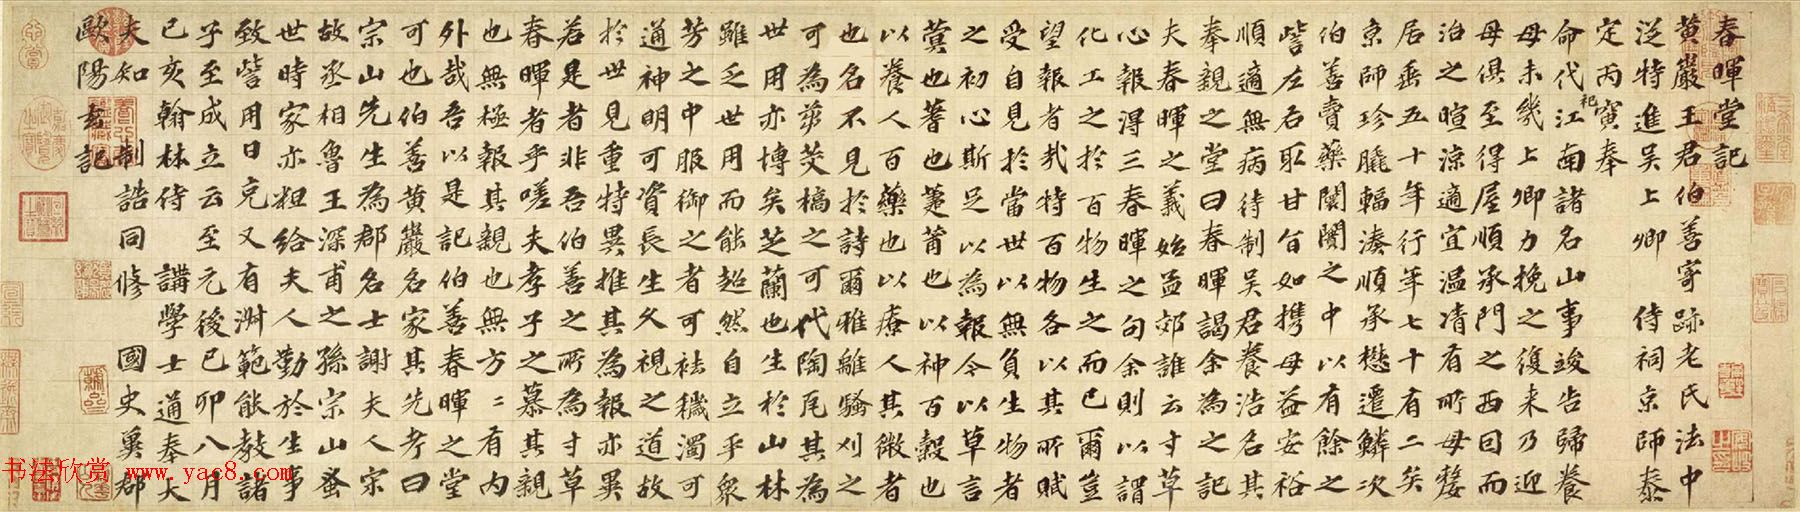 春暉堂記
黄巖王君伯善寄跡老氏法中
從特進吴上卿 侍祠京師泰
定丙寅奉
命代祀江南諸名山事竣告歸養
母未幾上卿力挽之復来乃迎
母俱至得屋順承門之西因而
治之暄涼適宜温凊有所母嫠
居垂五十年行年七十有二矣
京師珍臟輻湊順承懋遷鱗次
伯善賣藥闤闠之中以有餘之
訾左右取甘旨如携母益安裕
順適無病待制吴君養浩名其
奉親之堂曰春暉謁余為之記
夫春暉之義始孟郊誰云寸草
心報得三春暉之句余則以謂
化工之於百物生之而已爾豈
望報者哉特百物各以其所賦
受自見於當世以無負生物者
之初心斯足以為報今以草言
蓂也蓍也萐莆也以神百穀也
以養人百藥也以療人其微者
也名不見於詩爾雅離騷刈之
可為茭槁之可代陶瓦其為
世用亦博矣芝蘭也生於山林
雖乏世用而能超然自立乎衆
芳之中服御之者可祛穢濁可
通神明可資長生久視之道故
於世見重特異推其為報亦異
若是者非吾伯善之所為寸草
春暉者乎嗟夫孝子之慕其親
也無極報其親也無方二有内
外哉吾以是記伯善春暉之堂
可也伯善黄巖名家其先考曰
宗山先生為郡名士謝夫人宋
故丞相魯王深甫之孫宗山蚤
世時家亦粗給夫人勤於生事
致訾用日克又有淵範能教諸
子至成立云至元後己卯八月
已亥翰林侍 講學士通奉大
夫知 制誥同修 國史冀郡
歐陽玄記
书法欣赏 www.yac8.com